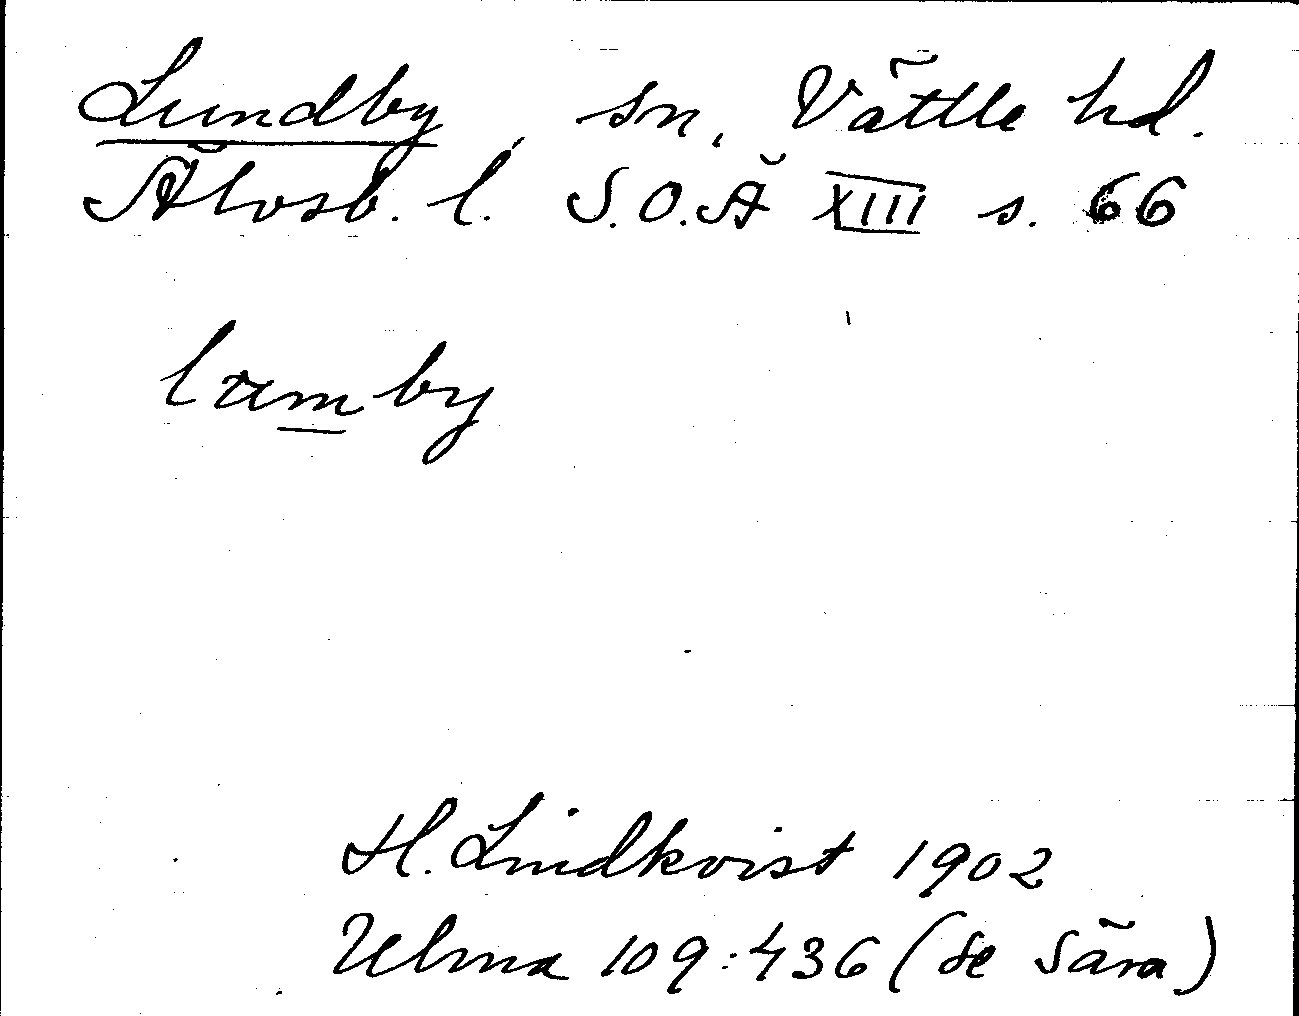 Lundby, sn, Vättle hd.
Älvsb. l. S.O.Ä XIII s. 66
lamby
H. Lindkvist 1902
Ulma 109:436 (se Säva)